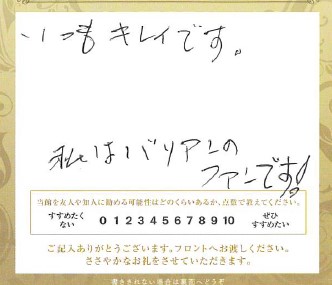 いつもキレイです。
私はバリアンの
ファンです!
当館を友人や知人に勧める可能性はどのくらいあるか、点数で教えてください。
すすめたく
ない
0 1 2 3 4 5 6 7 8 9 10
ぜひ
すすめたい
ご記入ありがとうございます。フロントへお渡しください。
ささやかなお礼をさせていただきます。
書ききれない場合は裏面へどうぞ